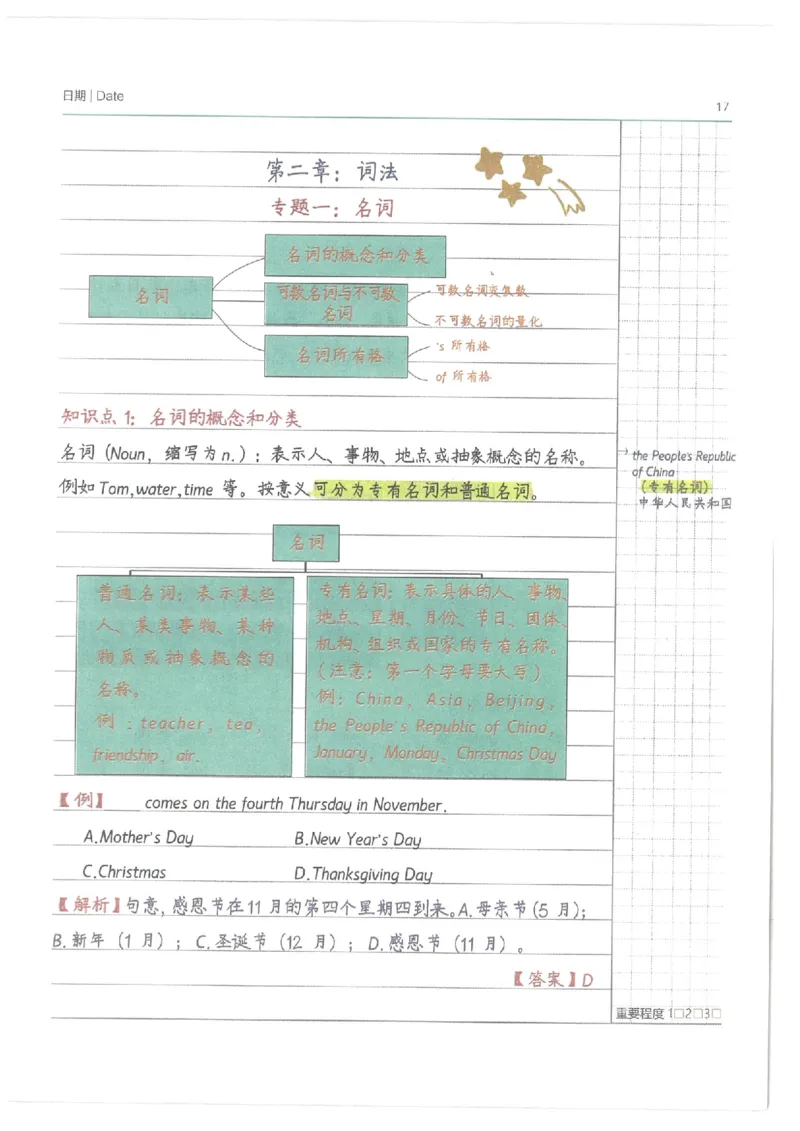 日期 | Date
17
第二章：词法
专题一：名词
名词
名词的概念和分类
可数名词与不可数
名词
可数名词变复数
不可数名词的量化
名词所有格
's 所有格
of 所有格
知识点 1：名词的概念和分类
名词（Noun，缩写为 n.）：表示人、事物、地点或抽象概念的名称。
例如 Tom,water,time 等。按意义可分为专有名词和普通名词。
the People's Republic
of China
（专有名词）
中华人民共和国
名词
普通名词：表示某些
人、某类事物、某种
物质或抽象概念的
名称。
例：teacher，tea，
friendship，air.
专有名词：表示具体的人、事物、
地点、星期、月份、节日、团体、
机构、组织或国家的专有名称。
（注意：第一个字母要大写）
例：China，Asia，Beijing，
the People's Republic of China，
January，Monday，Christmas Day
【例】____ comes on the fourth Thursday in November.
A.Mother's Day B.New Year's Day
C.Christmas D.Thanksgiving Day
【解析】句意，感恩节在 11 月的第四个星期四到来。A.母亲节（5 月）；
B.新年（1 月）；C.圣诞节（12 月）；D.感恩节（11 月）。
【答案】D
重要程度 1□2□3□